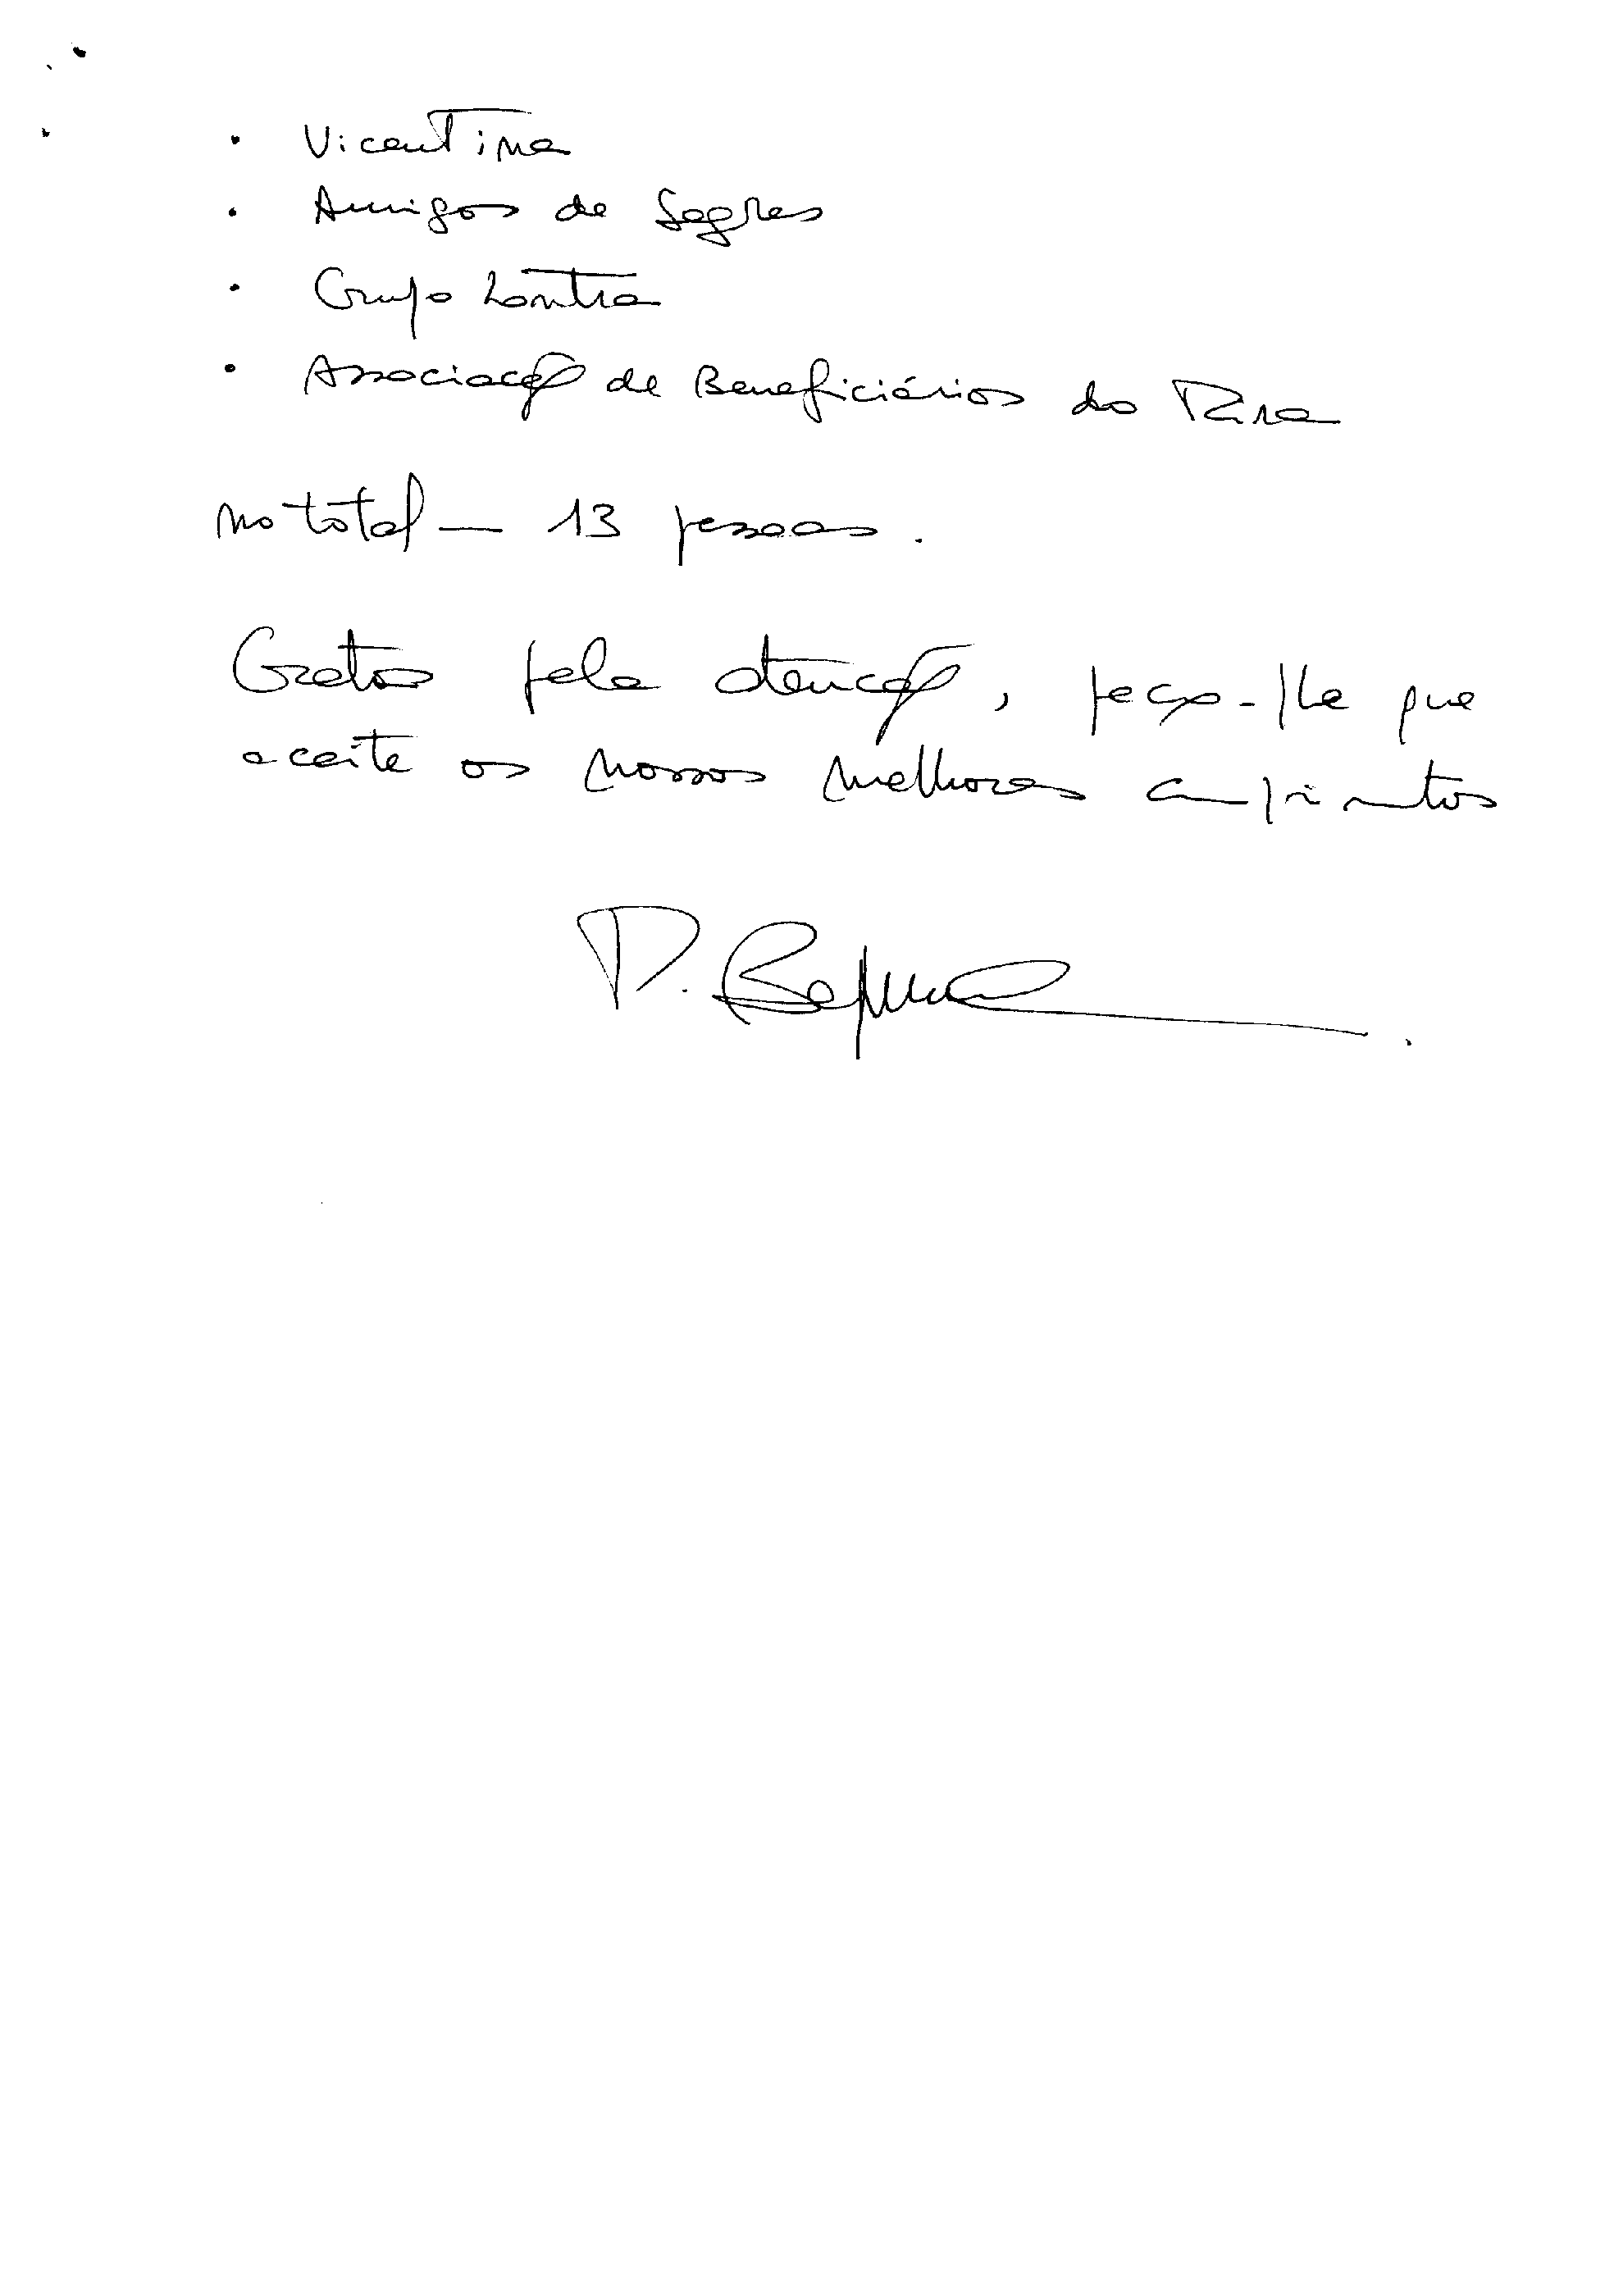 · Vicentina
· Amigos de Sagres
· Grupo Lontra
· Associação de Beneficiários do Mira
no total — 13 pessoas.
Gratos pela atenção, peço-lhe que
aceite os nossos melhores cumprimentos